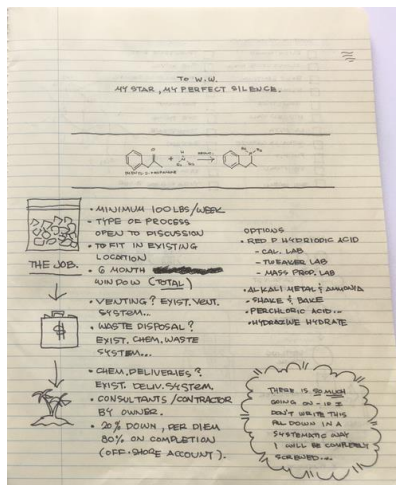 TO W.W.
MY STAR, MY PERFECT SILENCE.
PHENYL-2-PROPANONE
THE JOB.
• MINIMUM 100 LBS/WEEK
• TYPE OF PROCESS
OPEN TO DISCUSSION
• TO FIT IN EXISTING
LOCATION
• 6 MONTH
WINDOW (TOTAL)
• VENTING? EXIST. VENT.
SYSTEM...
• WASTE DISPOSAL?
EXIST. CHEM. WASTE
SYSTEM...
• CHEM. DELIVERIES?
EXIST. DELIV. SYSTEM.
• CONSULTANTS/CONTRACTOR
BY OWNER.
• 20% DOWN, PER DIEM
80% ON COMPLETION
(OFF-SHORE ACCOUNT).
OPTIONS
• RED P HYDRIODIC ACID
- CAL. LAB
- TWEAKER LAB
- MASS PROP. LAB
• ALKALI METAL & AMMONIA
• SHAKE & BAKE
• PERCHLORIC ACID...
• HYDRAZINE HYDRATE
THERE IS SO MUCH
GOING ON - IF I
DON'T WRITE THIS
ALL DOWN IN A
SYSTEMATIC WAY
I WILL BE COMPLETELY
SCREWED...